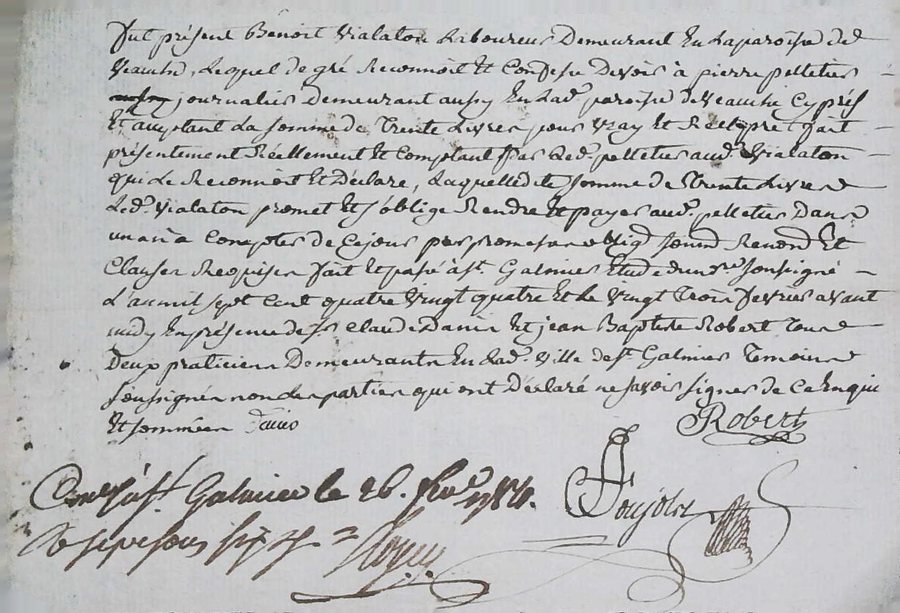 fut présent Benoit Vialaton Laboureur Demeurant En La paroisse de
Veauche, Lequel de gré Reconnoit Et Confesse Devoir à pierre pelletier
journalier Demeurant aussy En Lad. paroisse de Veauche Cy prést
Et acceptant La somme de Trente Livres pour Vray Et Réel prêt fait
présentement Réellement Et Comptant par Led. pelletier aud. Vialaton
qui Le Reconnoit Et Déclare, Laquelle dite somme de Trente Livres
Led. Vialaton promet Et s'oblige Rendre Et payer aud. pelletier Dans
un an à Compter de Ce jour par promesse oblig. soumd. Renond. Et
Clauses Requises fait Et passé à St. Galmier Etude du nre. soussigné
L'an mil sept Cent quatre Vingt quatre Et Le Vingt Trois fevrier avant
midy En présence de Srs. Claude Danis Et jean Baptiste Robert Tous
Deux praticiens Demeurants En Lad. Ville de St. Galmier Temoins
soussignés non les parties qui ont Déclaré ne savoir signer de Ce Enquis
Et sommées Danis
Robert
Con. à St. Galmier le 26. fev. 1784.
Ponjolet